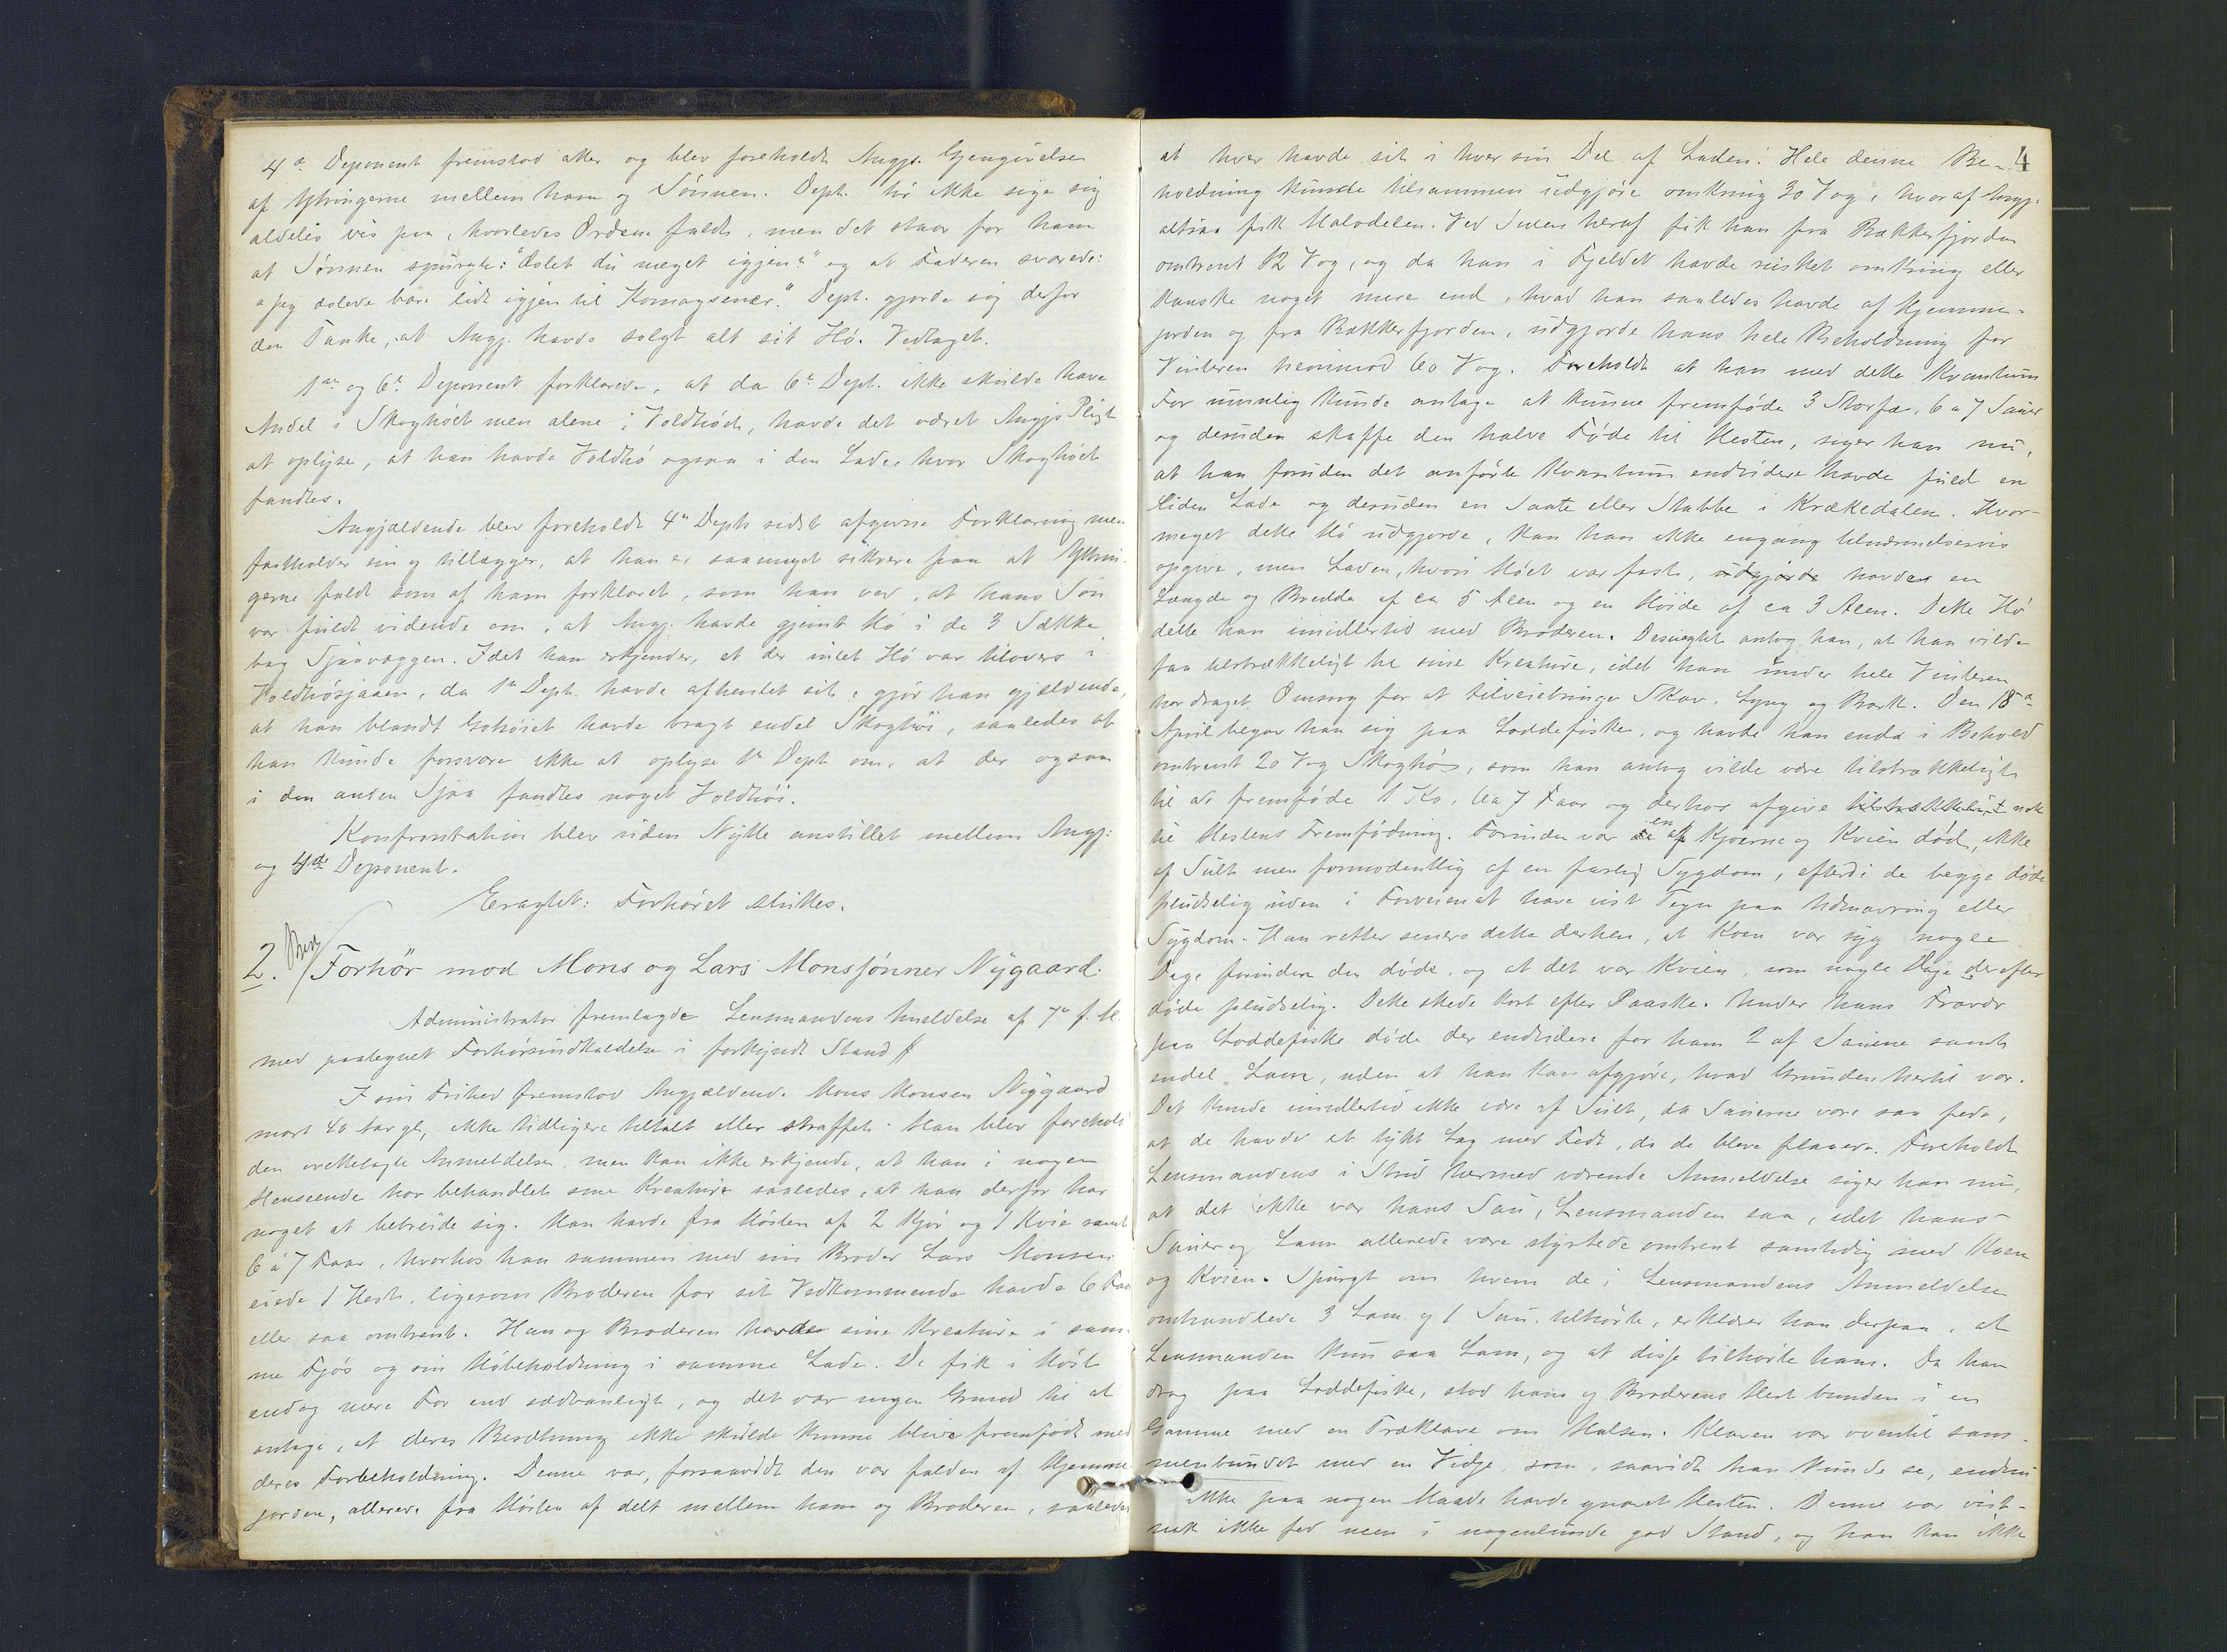 4de Deponent fremstod atter og blev foreholdt Angjs. Gjengivelse
af Ytringerne mellem ham og Sønnen. Dept. tør ikke sige sig
aldeles vis paa, hvorledes Ordene faldt, men det staar for ham
at Sønnen spurgte: "Aslet du meget igjen?" og at Faderen svarede:
"jeg aslede bare lidt igjen til Komagsener." Dept. gjorde sig derfor
den Tanke, at Angj. havde solgt alt sit Hø. Vedtaget.
1ste og 6te Deponent forklarede, at da 6te Dept. ikke skulde have
Andel i Skoghøet men alene i Voldhøet, havde det været Angjs Pligt
at oplyse, at han havde Voldhø ogsaa i den Lade hvor Skoghøet
fandtes.
Angjældende blev foreholdt 4de Depts sidst afgivne Forklaring men
fastholder sin og tillægger, at han er saameget sikrere paa at Ytrin-
gerne faldt som af ham forklaret, som han ved, at hans Søn
var fuldt vidende om, at Angj. havde gjemt Hø i de 3 Sække
bag Sjaavæggen. Idet han erkjender, at der intet Hø var tilovers i
Voldhøsjaaen, da 1ste Dept. havde afhentet sit, gjør han gjældende,
at han blandt havde bragt endel Skoghøi, saaledes at
han kunde forsvare ikke at oplyse 1ste Dept om, at der ogsaa
i den anden Sjaa fandtes noget Voldhøi.
Konfrontation blev uden Nytte anstillet mellem Angj:
og 4de Deponent.
Eragtet: Forhøret sluttes.
2. Forhør mod Mons og Lars Monssønner Nygaard.
Administrator fremlagde Lensmandens Anmeldelse af 7de f. M.
med paategnet Forhørsindkaldelse i forkyndt Stand
I sin Frihed fremstod Angjældende Mons Monsen Nygaard
næst 40 Aar gl, ikke tidligere tiltalt eller straffet. Han blev foreholdt
den irettelagte Anmeldelse, men kan ikke erkjende, at han i nogen
Henseende har behandlet sine Kreature saaledes, at han derfor har
noget at bebreide sig. Han havde fra Høsten af 2 Kjør og 1 Kvie samt
6 à 7 Faar, hvorhos han sammen med sin Broder Lars Monsen
eiede 1 Hest, ligesom Broderen for sit Vedkommende havde 6 Faar
eller saa omtrent. Han og Broderen havde sine Kreature i sam-
me Fjøs og sin Høbeholdning i samme Lade. De fik i Høst
endog mere For end sædvanligt, og det var ingen Grund til at
antage, at deres Besætning ikke skulde kunne blive fremfødt med
deres Forbeholdning. Denne var, forsaavidt den var falden af Hjemme-
jorden, allerede fra Høsten af delt mellem ham og Broderen, saaledes
4
at hver havde sit i hver sin Del af Laden. Hele denne Be-
holdning kunde tilsammen udgjøre omkring 30 Vog, hvoraf Angj.
altsaa fik Halvdelen. Ved Siden heraf fik han fra Bækkerfjorden
omtrent 12 Vog, og da han i Fjeldet havde omkring eller
kanske noget mere end, hvad han saaledes havde af Hjemme-
jorden og fra Bækkerfjorden, udgjorde hans hele Beholdning for
Vinteren henimod 60 Vog. Foreholdt at han med dette Kvantum
For umulig kunde antage at kunne fremføde 3 Storfæ, 6 a 7 Sauer
og desuden skaffe den halve Føde til Hesten, siger han nu,
at han foruden det anførte Kvantum endvidere havde fuld en
liden Lade og desuden en Saate eller Stabbe i Krækedalen. Hvor-
meget dette Hø udgjorde, kan han ikke engang tilnærmelsesvis
opgive, men Laden, hvori Høet var fast, udgjorde havde en
Længde og Bredde af ca 5 Alen og en Høide af ca 3 Alen. Dette Hø
delte han imidlertid med Broderen. Desuagtet antog han, at han vilde
faa tilstrækkeligt til sine Kreature, idet han under hele Vinteren
har draget Omsorg for at tilveiebringe Skav, Lyng og Bark. Den 18de
April begav han sig paa Loddefiske, og havde han enda i Behold
omtrent 20 Vog Skoghø, som han antog vilde være tilstrækkeligt
til at fremføde 1 Ko, 6 a 7 Faar og derhos afgive tilstrækkeligt nok
til Hestens Fremfødning. Forinden var en af Kjørne og Kvien død, ikke
af Sult men formodentlig af en farlig Sygdom, efterdi de begge døde
pludselig uden i Forveien at have vist Tegn paa Udmavring eller
Sygdom. Han retter senere dette derhen, at Koen var syg nogle
Dage forinden den døde, og at det var Kvien, som nogle Dage derefter
døde pludselig. Dette skede kort efter Paaske. Under hans Fravær
paa Loddefiske døde der endvidere for ham 2 af Sauene samt
endel Lam, uden at han kan afgjøre, hvad Grunden hertil var.
Det kunde imidlertid ikke være af Sult, da Sauerne vare saa fede,
at de havde et tykt Lag med Fedt, da de bleve flaaede. Foreholdt
Lensmandens i Strid hermed værende Anmeldelse siger han nu,
at det ikke var hans Sau, Lensmanden saa, idet hans
Sauer og Lam allerede vare styrtede omtrent samtidig med Koen
og Kvien. Spurgt om hvem de i Lensmandens Anmeldelse
omhandlede 3 Lam og 1 Sau tilhørte, erklærer han derpaa, at
Lensmanden kun saa Lam, og at disse tilhørte ham. Da han
drog paa Loddefiske, stod hans og Broderens Hest bunden i en
Gamme med en Træklave om Halsen. Klaven var oventil sam-
menbundet med en Vidje, som, saavidt han kunde se, endnu
ikke paa nogen Maade havde gnavet Hesten. Denne var vist-
nok ikke fed men i nogenlunde god Stand, og han kan ikke